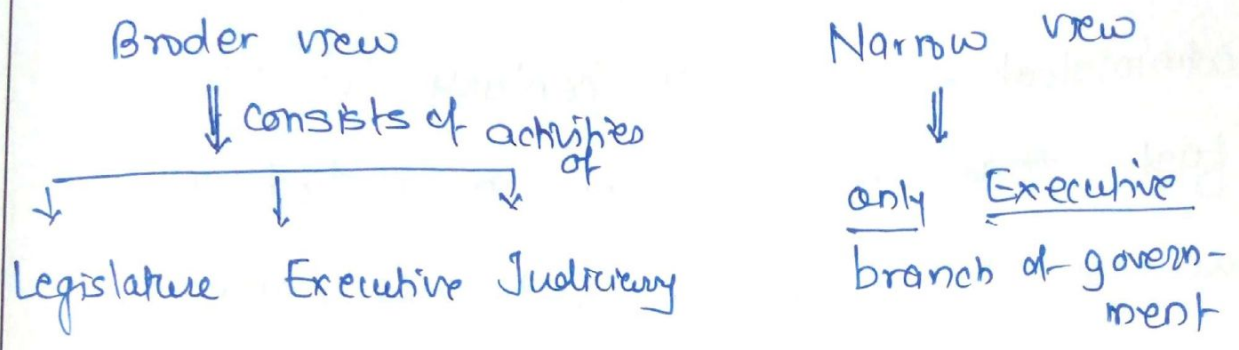 Broder view
consists of activities
of
Legislature Executive Judiciary
Narrow view
only Executive
branch of govern-
ment